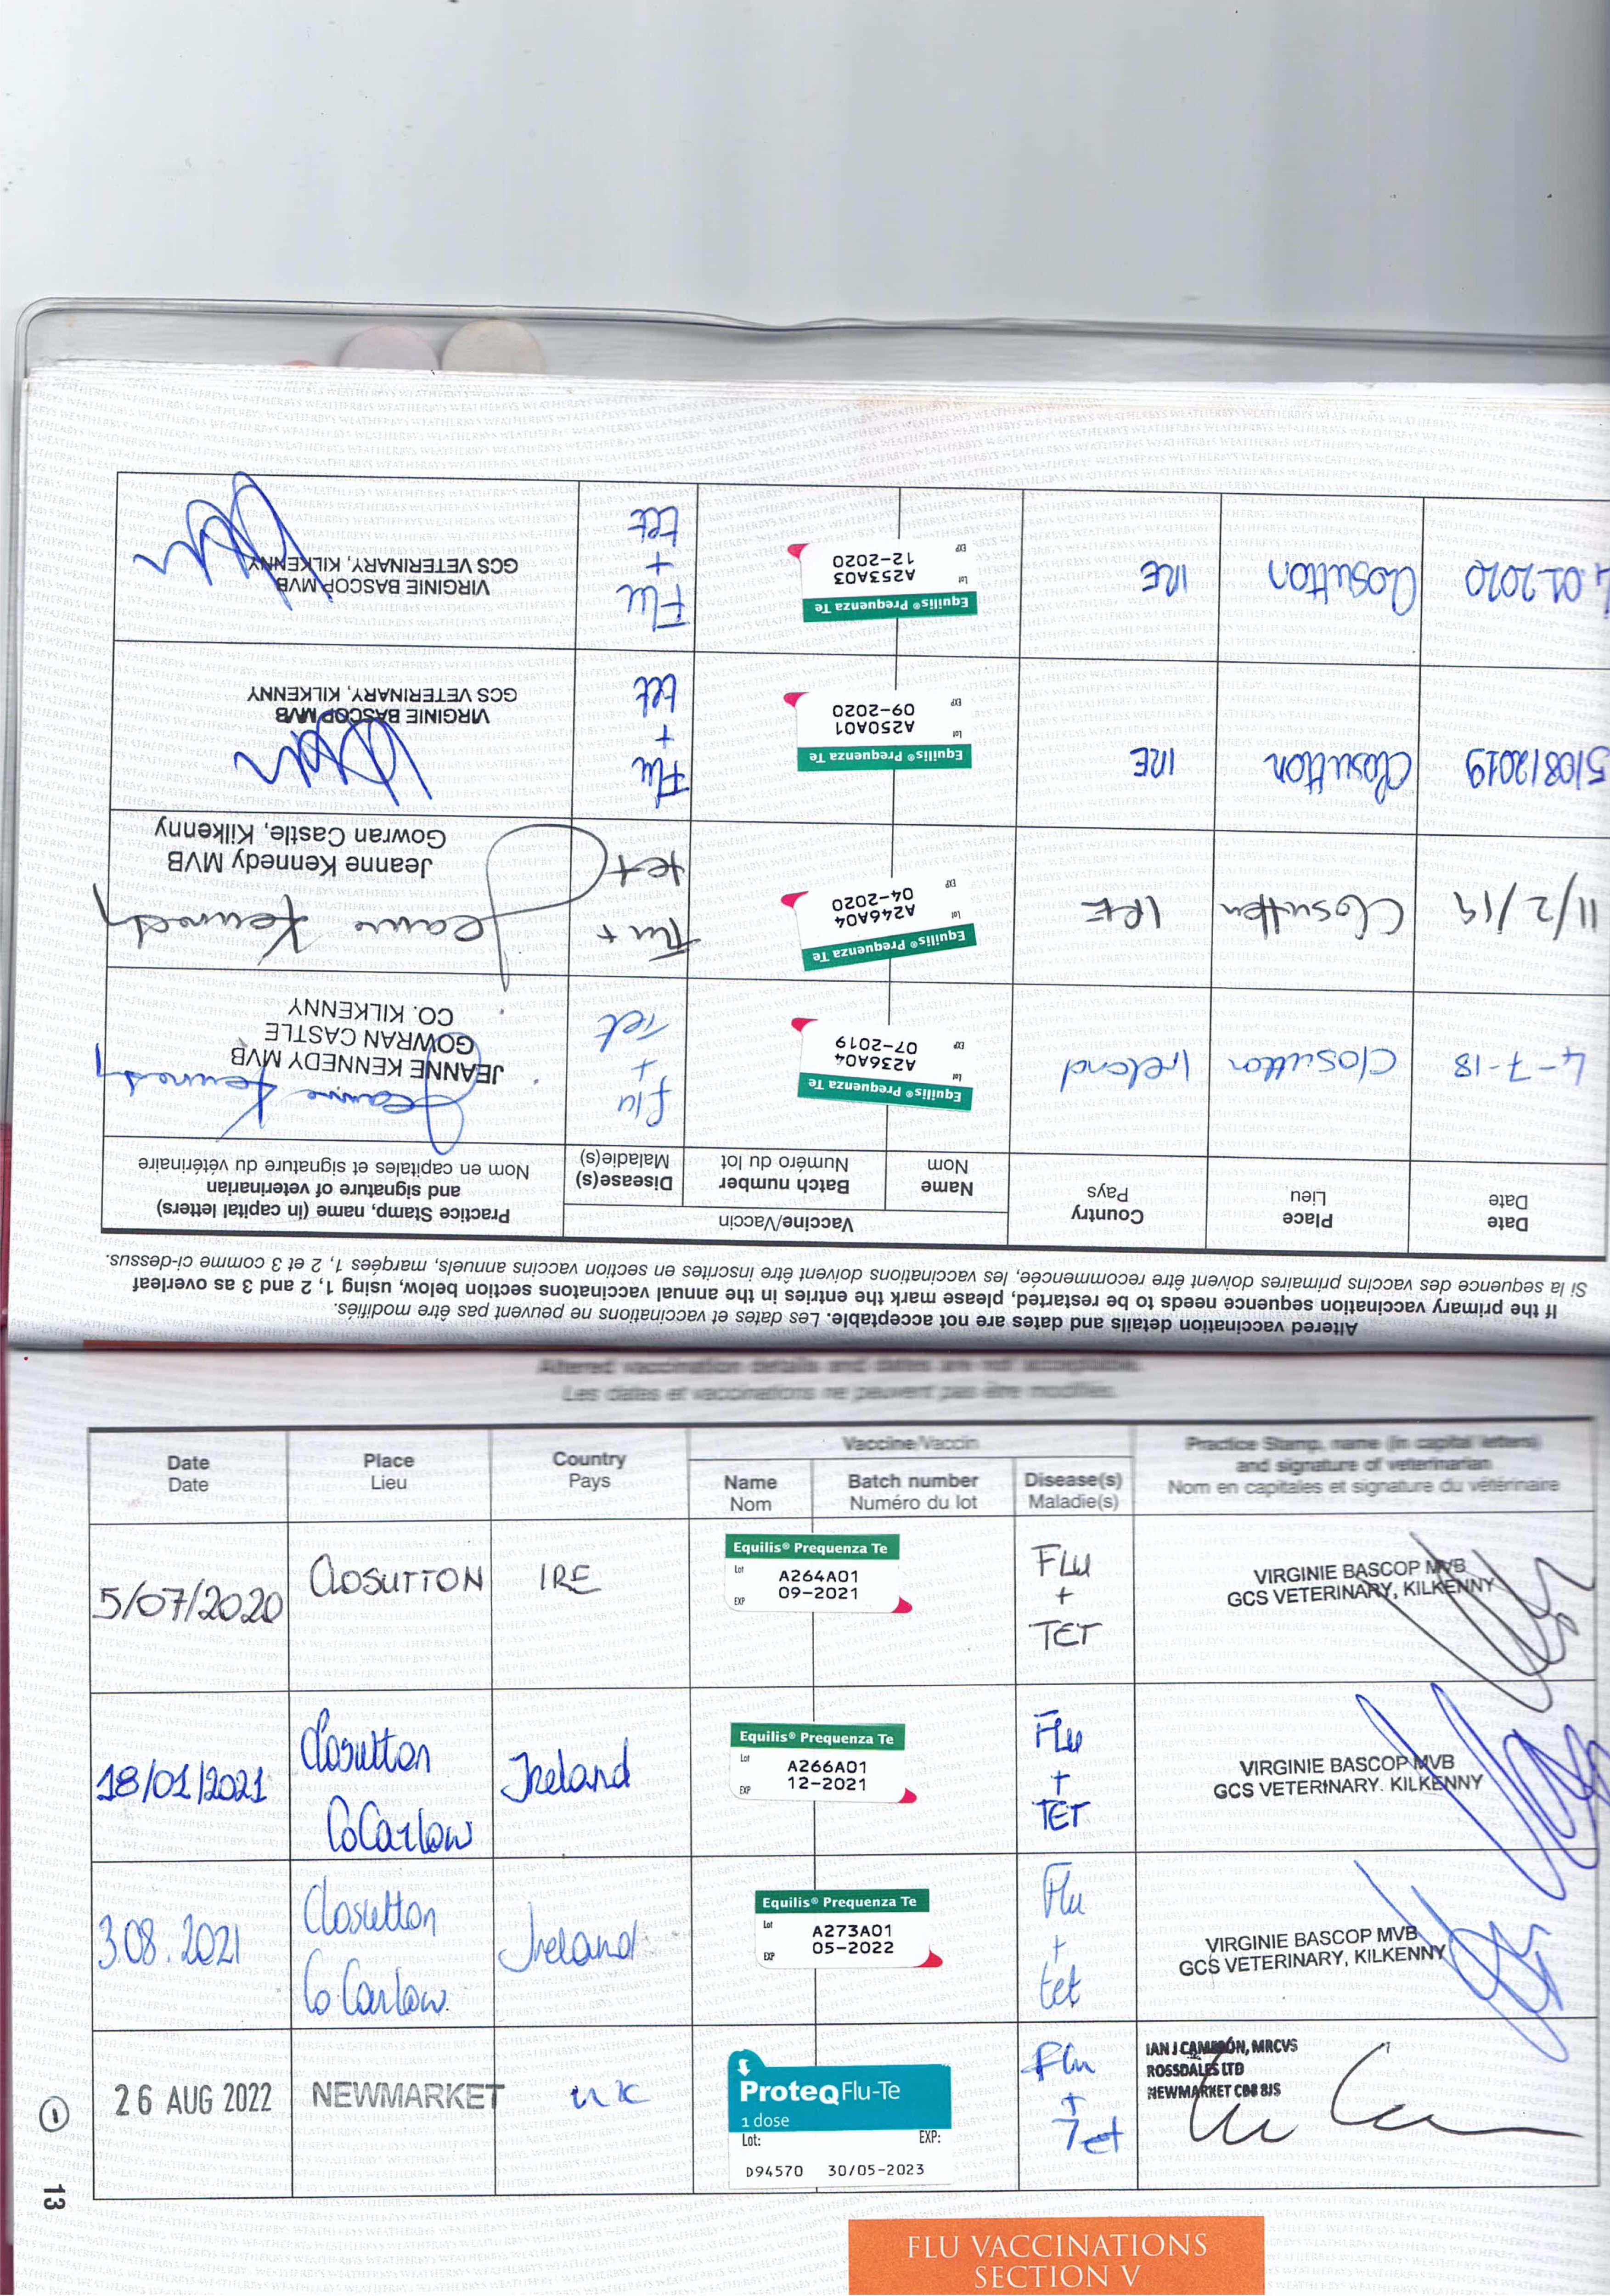 Altered vaccination details and dates are not acceptable. Les dates et vaccinations ne peuvent pas être modifiés.
If the primary vaccination sequence needs to be restarted, please mark the entries in the annual vaccinatons section below, using 1, 2 and 3 as overleaf
Si la séquence des vaccins primaires doivent être recommencée, les vaccinations doivent être inscrites en section vaccins annuels, marqées 1, 2 et 3 comme ci-dessus.
Date
Date
Place
Lieu
Country
Pays
Vaccine/Vaccin
Name
Nom
Batch number
Numéro du lot
Disease(s)
Maladie(s)
Practice Stamp, name (in capital letters)
and signature of veterinarian
Nom en capitales et signature du vétérinaire
4-7-18
Closutton
Ireland
Equilis® Prequenza Te
Lot A236A04
EXP 07-2019
flu
+
Tet
JEANNE KENNEDY MVB
GOWRAN CASTLE
CO. KILKENNY
Jeanne Kennedy
11/2/19
Closutton
IRE
Equilis® Prequenza Te
Lot A246A04
EXP 04-2020
Flu +
tet
Jeanne Kennedy
Jeanne Kennedy MVB
Gowran Castle, Kilkenny
5/08/2019
Closutton
IRE
Equilis® Prequenza Te
Lot A250A01
EXP 09-2020
Flu
+
tet
VIRGINIE BASCOP MVB
GCS VETERINARY, KILKENNY
.01.2020
Closutton
IRE
Equilis® Prequenza Te
Lot A253A03
EXP 12-2020
Flu
+
tet
VIRGINIE BASCOP MVB
GCS VETERINARY, KILKENNY
Altered vaccination details and dates are not acceptable.
Les dates et vaccinations ne peuvent pas être modifiés.
Date
Date
Place
Lieu
Country
Pays
Vaccine/Vaccin
Name
Nom
Batch number
Numéro du lot
Disease(s)
Maladie(s)
Practice Stamp, name (in capital letters)
and signature of veterinarian
Nom en capitales et signature du vétérinaire
5/07/2020
CLOSUTTON
IRE
Equilis® Prequenza Te
Lot A264A01
EXP 09-2021
FLU
+
TET
VIRGINIE BASCOP MVB
GCS VETERINARY, KILKENNY
18/01/2021
Closutton
Co Carlow
Ireland
Equilis® Prequenza Te
Lot A266A01
EXP 12-2021
Flu
+
TET
VIRGINIE BASCOP MVB
GCS VETERINARY. KILKENNY
3.08.2021
Closutton
Co Carlow.
Ireland
Equilis® Prequenza Te
Lot A273A01
EXP 05-2022
Flu
+
tet
VIRGINIE BASCOP MVB
GCS VETERINARY, KILKENNY
1
26 AUG 2022
NEWMARKET
UK
ProteqFlu-Te
1 dose
Lot: EXP:
D94570 30/05-2023
Flu
+
Tet
IAN J CAMERON, MRCVS
ROSSDALES LTD
NEWMARKET CB8 8JS
13
FLU VACCINATIONS
SECTION V